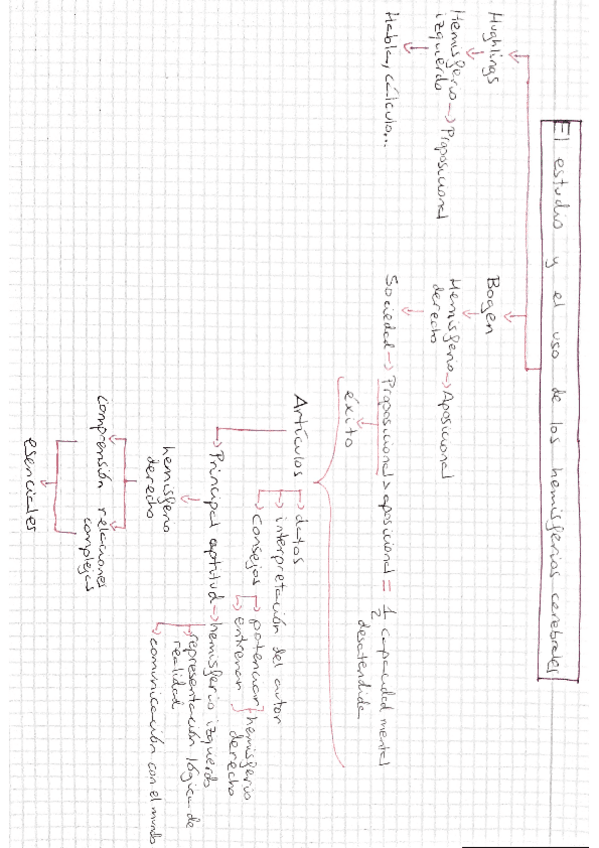 El estudio y el uso de los hemisferios cerebrales
Hughlings
Hemisferio → Proposicional
izquierdo
Habla, cálculo...
Bogen
Hemisferio → Aposicional
derecho
Sociedad → Proposicional > aposicional = 1/2 capacidad mental
desatendida
éxito
Artículos
datos
interpretación del autor
consejos
potenciar
entrenar
hemisferio
derecho
→ Principal aptitud → hemisferio izquierdo
representación lógica de
realidad
comunicación con el mundo
hemisferio
derecho
comprensión relaciones
complejas
esenciales